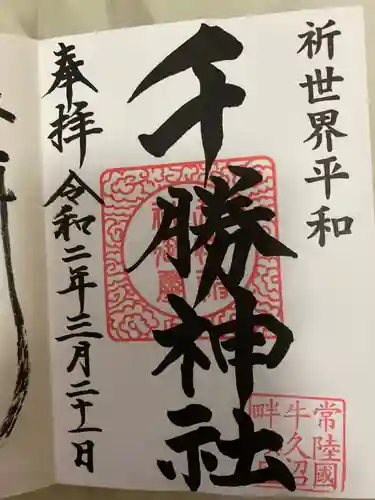 祈世界平和
千勝神社
奉拝 令和二年三月二十一日
常陸國
牛久沼
畔